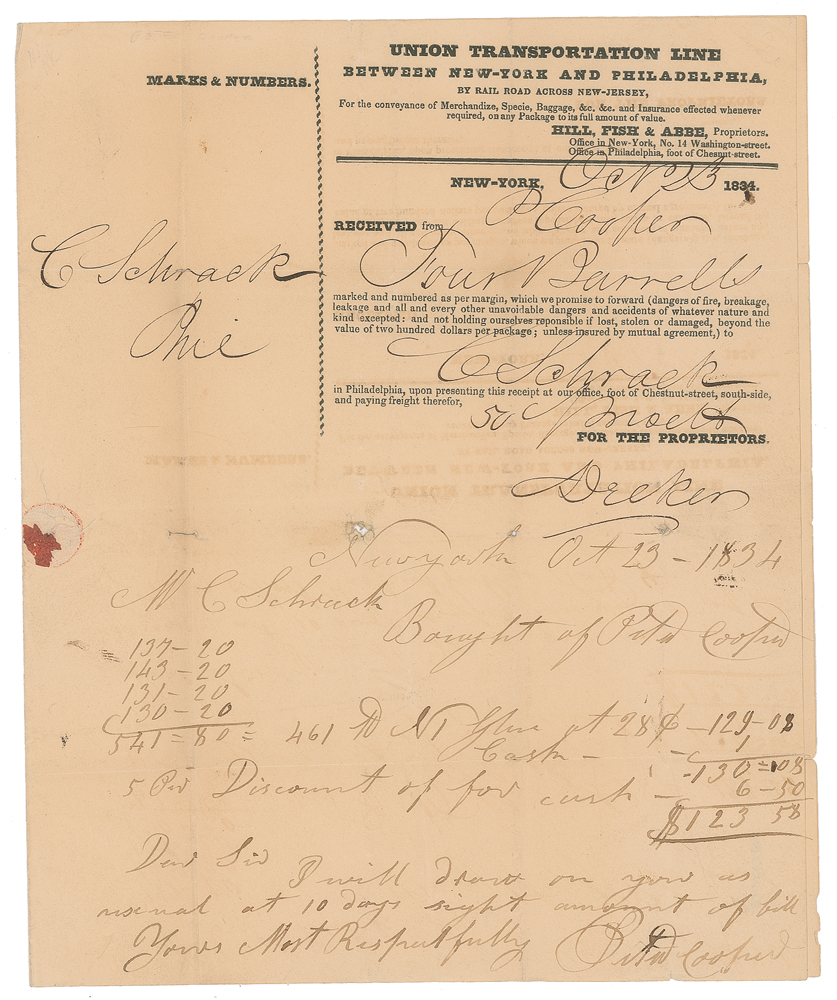 MARKS & NUMBERS.
C Schrack
Phil
UNION TRANSPORTATION LINE
BETWEEN NEW-YORK AND PHILADELPHIA,
BY RAIL ROAD ACROSS NEW-JERSEY,
For the conveyance of Merchandize, Specie, Baggage, &c. &c. and Insurance effected whenever
required, on any Package to its full amount of value.
HILL, FISH & ABBE, Proprietors.
Office in New-York, No. 14 Washington-street.
Office in Philadelphia, foot of Chesnut-street.
NEW-YORK, Oct 23 1834.
RECEIVED from P Cooper
Four Barrells
marked and numbered as per margin, which we promise to forward (dangers of fire, breakage,
leakage and all and every other unavoidable dangers and accidents of whatever nature and
kind excepted: and not holding ourselves reponsible if lost, stolen or damaged, beyond the
value of two hundred dollars per package; unless insured by mutual agreement,) to
C Schrack
in Philadelphia, upon presenting this receipt at our office, foot of Chestnut-street, south-side,
and paying freight therefor,
50
FOR THE PROPRIETORS.
Decker
New york Oct 23 - 1834
Mr C Schrack
Bought of Peter Cooper
137 - 20
143 - 20
131 - 20
130 - 20
541 = 80 = 461 lb N1 Glue at 28 ¢ - 129 - 08
Cask - - 1
- 130 = 08
5 Per Discount of for cash - 6 - 50
$123 58
Dear Sir I will draw on you as
usual at 10 days sight amount of bill
Yours Most Respectfully Peter Cooper